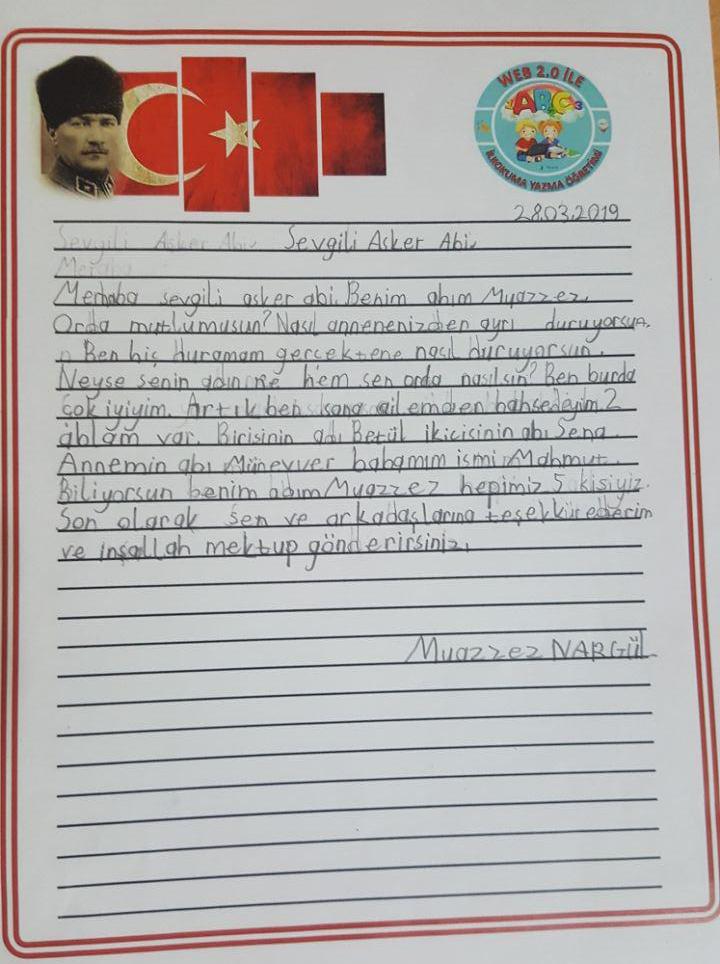 WEB 2.0 İLE
ABC
İLKOKUMA YAZMA ÖĞRETİMİ
28.03.2019
Sevgili Asker Abi, Sevgili Asker Abi,
Meraba
Merhaba sevgili asker abi. Benim abım Muazzez.
Orda mutlumusun? Nasıl annenenizden ayrı duruyorsun.
Ben hiç duramam gerçektene nasıl duruyorsun.
Neyse senin adın ne hem sen orda nasılsın? Ben burda
çok iyiyim. Artık ben sana ailemden bahsedeyim. 2
ablam var. Birisinin adı Betül ikicisinin abı Sena.
Annemin abı Münevver babamım ismi Mahmut.
Biliyorsun benim adım Muazzez hepimiz 5 kisiyiz.
Son olarak sen ve arkadaşlarına teşekkür ederim
ve inşallah mektup gönderirsiniz.
Muazzez NARGÜL